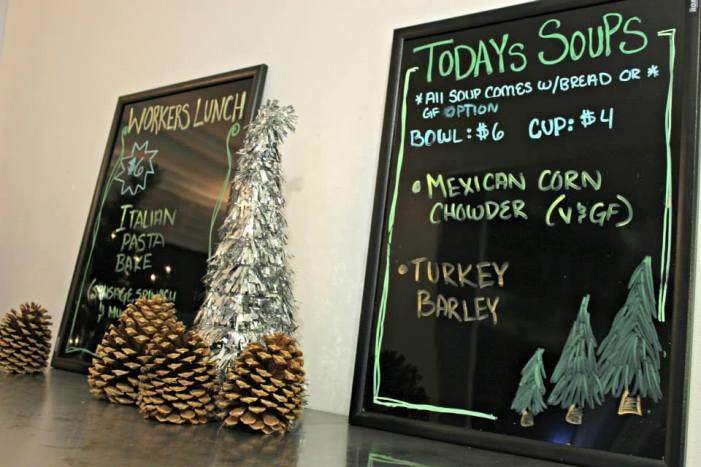 WORKERS LUNCH
$6
ITALIAN
PASTA
BAKE
TODAYS SOUPS
*All SOUP COMES W/BREAD OR *
GF OPTION
BOWL: $6 CUP: $4
• MEXICAN CORN
CHOWDER (V&GF)
• TURKEY
BARLEY